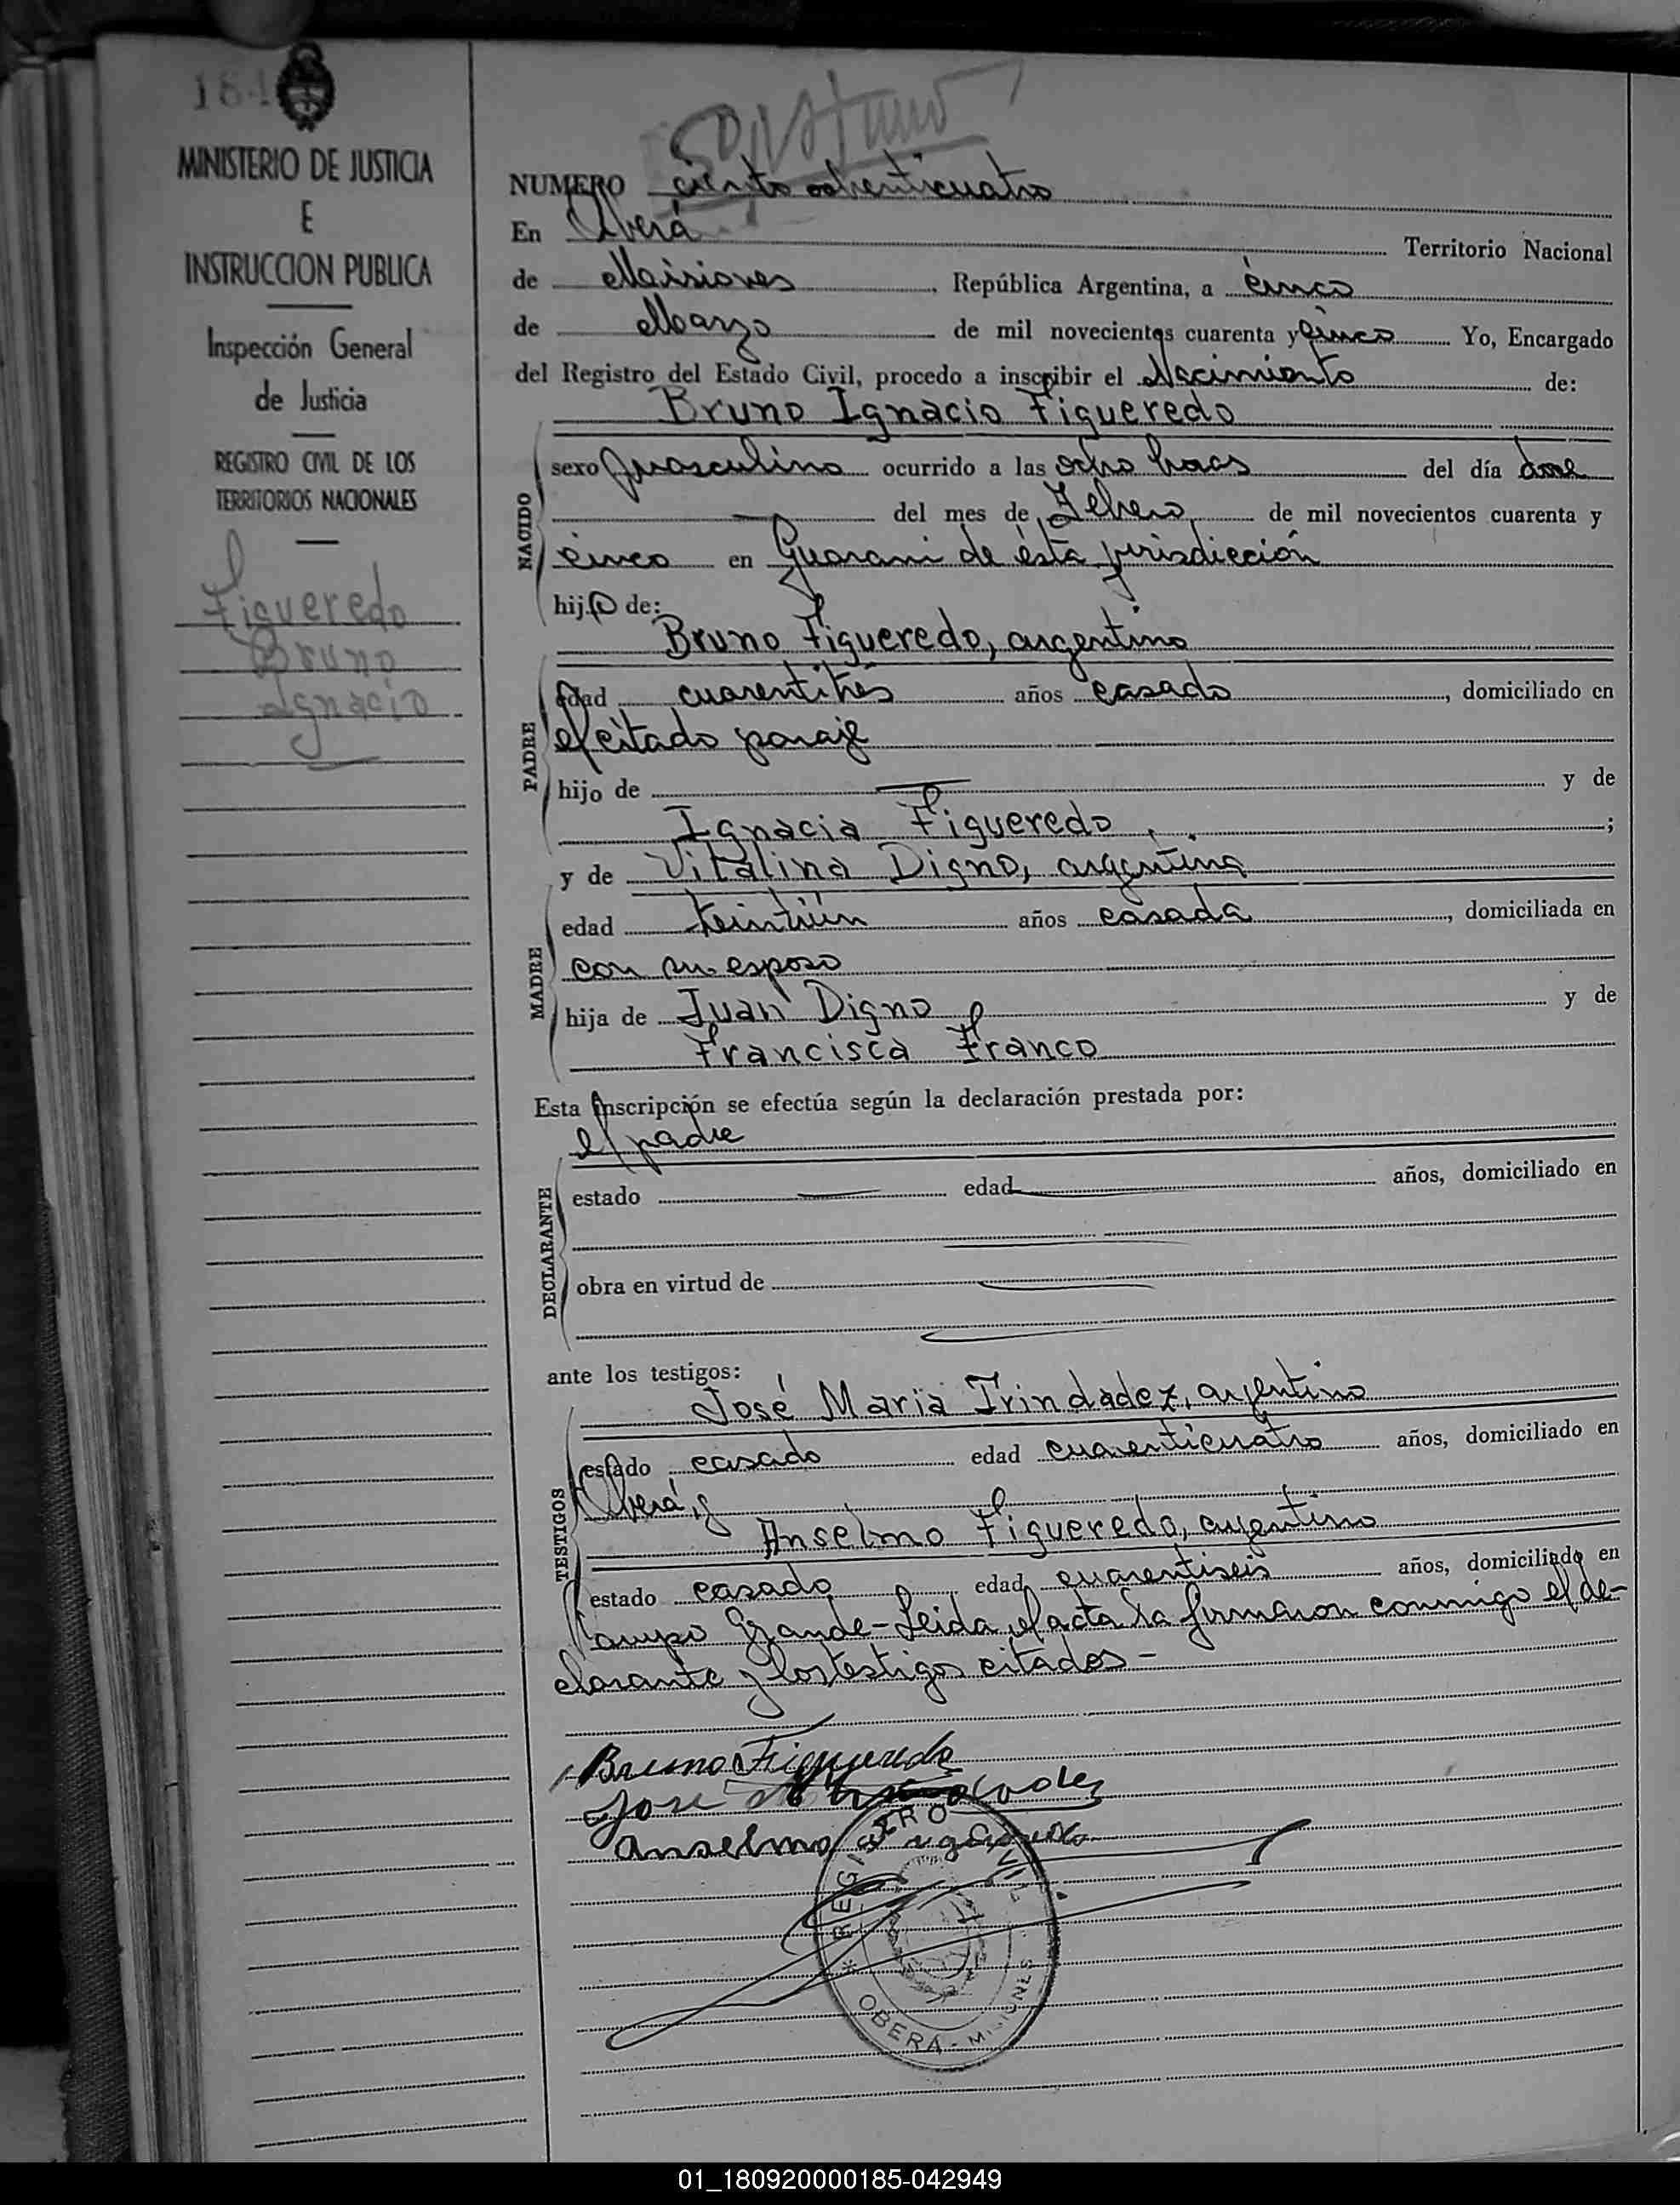 184
MINISTERIO DE JUSTICIA
E
INSTRUCCION PUBLICA
Inspección General
de Justicia
REGISTRO CIVIL DE LOS
TERRITORIOS NACIONALES
Figueredo
Bruno
Ignacio
NUMERO ciento ochenticuatro
En Oberá Territorio Nacional
de Misiones República Argentina, a cinco
de Marzo de mil novecientos cuarenta y cinco Yo, Encargado
del Registro del Estado Civil, procedo a inscribir el Nacimiento de:
Bruno Ignacio Figueredo
NACIDO
sexo masculino ocurrido a las ocho horas del día doce
del mes de Febrero de mil novecientos cuarenta y
cinco en Guarani de ésta jurisdicción
hijo de:
Bruno Figueredo, argentino
PADRE
edad cuarentitrés años casado, domiciliado en
el citado paraje
hijo de y de
Ignacia Figueredo, ;
y de Vitalina Digno, argentina
MADRE
edad años casada, domiciliada en
con su esposo
hija de Juan Digno y de
Francisca Franco
Esta inscripción se efectúa según la declaración prestada por:
el padre
DECLARANTE
estado edad años, domiciliado en
obra en virtud de
ante los testigos:
José Maria Trindadez, argentino
TESTIGOS
estado casado edad cuarenticuatro años, domiciliado en
Oberá, y
Anselmo Figueredo, argentino
estado casado edad cuarentiseis años, domiciliado en
Campo Grande-Leida el acta la firmaron conmigo el de-
clarante y los testigos citados-
Bruno Figueredo
Jose
Anselmo Figueredo
REGISTRO CIVIL
* OBERÁ - MISIONES
01_180920000185-042949